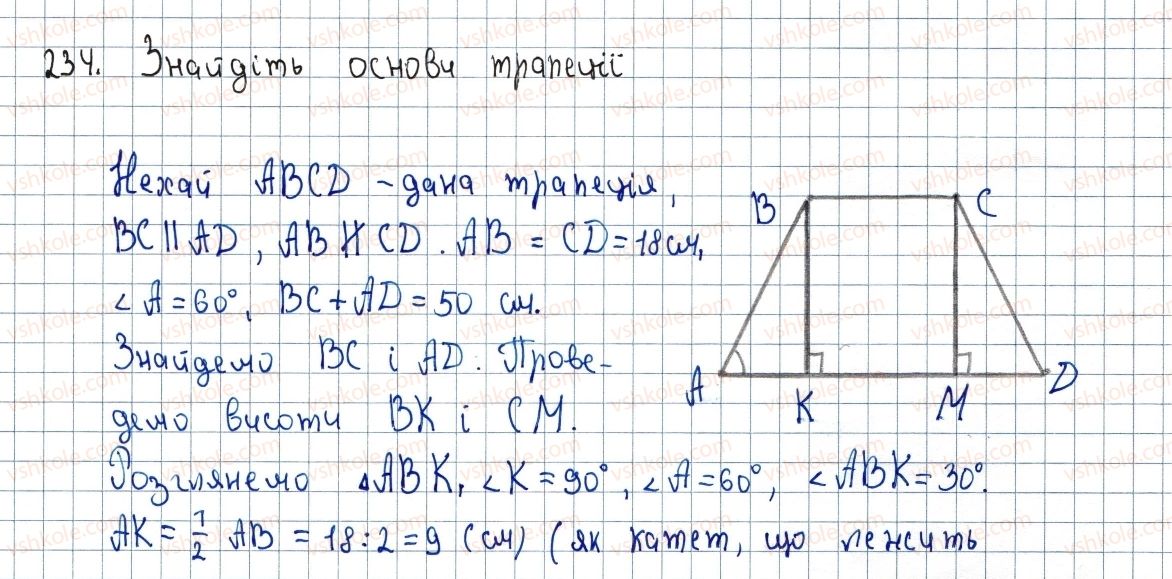 234. Знайдіть основи трапеції
Нехай ABCD - дана трапеція,
BC || AD, AB ∦ CD. AB = CD = 18 см,
∠A = 60°, BC + AD = 50 см.
Знайдемо BC і AD. Прове-
демо висоти BK і CM.
Розглянемо ΔABK, ∠K = 90°, ∠A = 60°, ∠ABK = 30°.
AK = 1/2 AB = 18 : 2 = 9 (см) (як катет, що лежить
B
C
A
K
M
D
vshkole.com